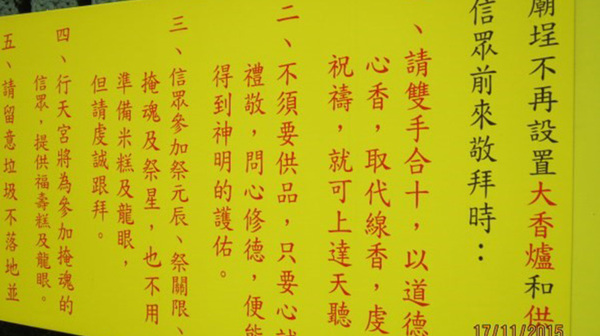 廟埕不再設置大香爐和供
信眾前來敬拜時：
、請雙手合十，以道德
心香，取代線香，虔
祝禱，就可上達天聽
二、不須要供品，只要心誠
禮敬，問心修德，便能
得到神明的護佑。
三、信眾參加祭元辰、祭關限、
掩魂及祭星，也不用
準備米糕及龍眼，
但請虔誠跟拜。
四、行天宮將為參加掩魂的
信眾，提供福壽糕及龍眼。
五、請留意垃圾不落地並
17/11/2015